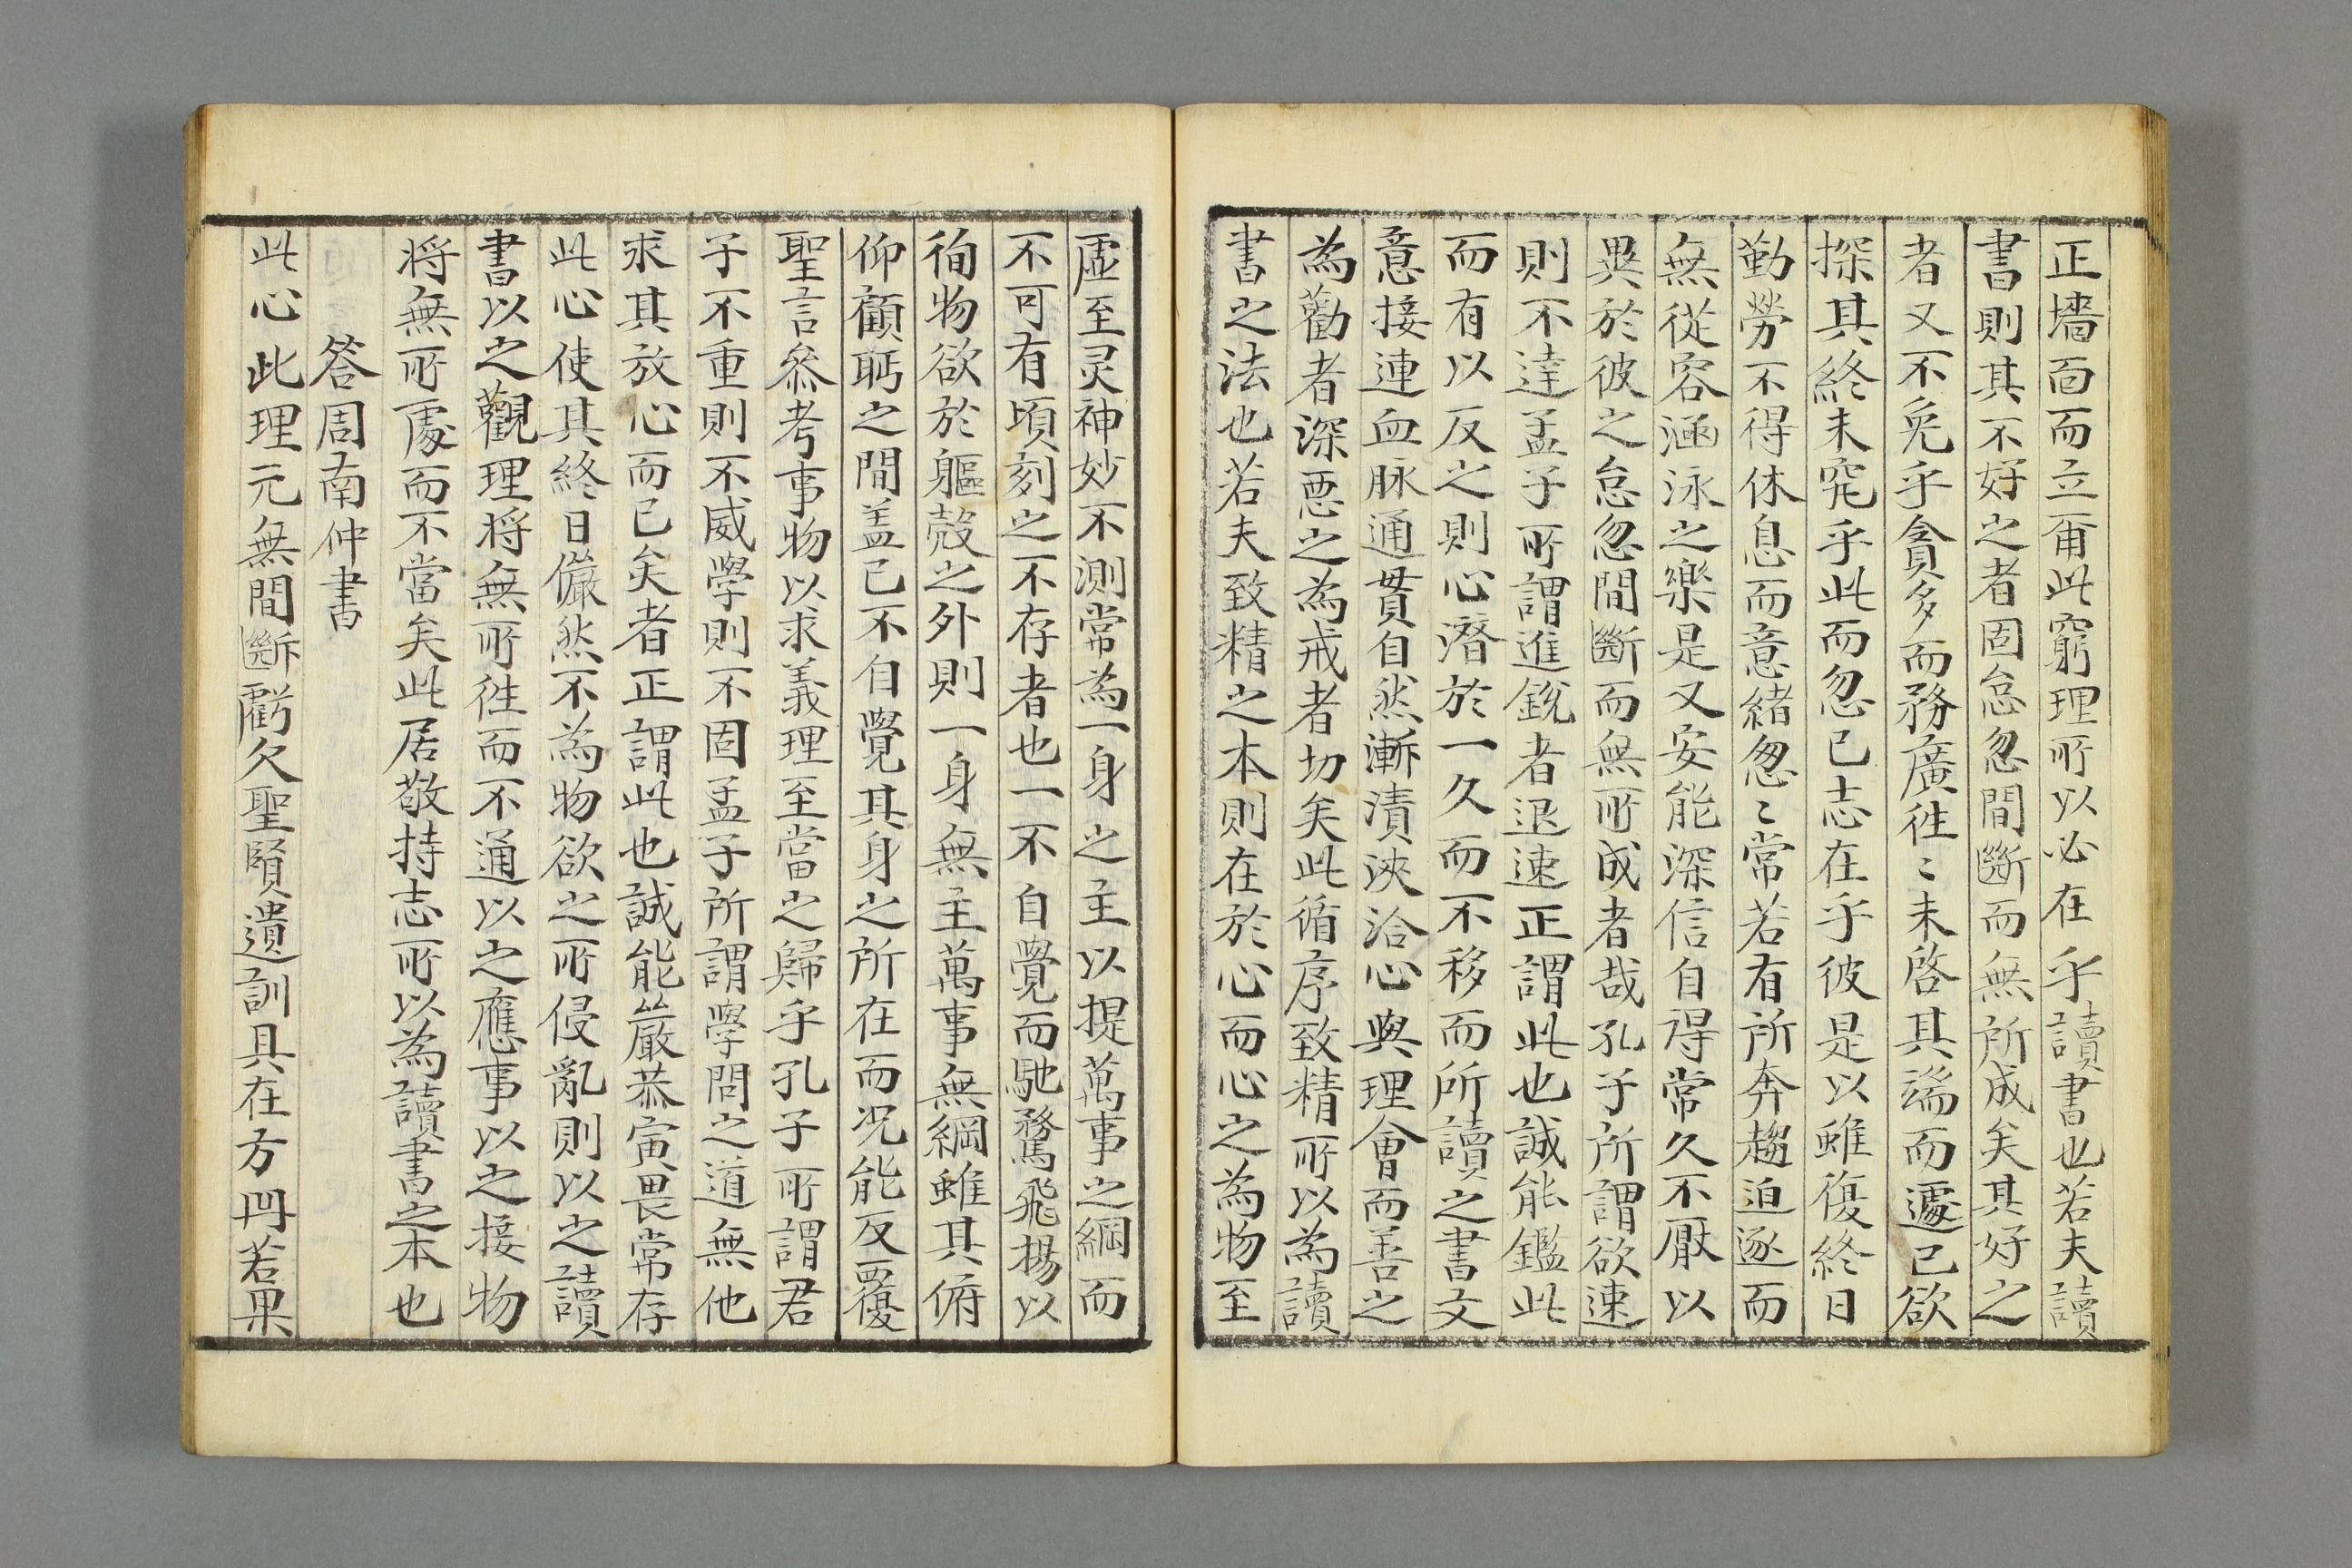 正墻面而立爾此窮理所以必在乎讀書也若夫讀
書則其不好之者固怠忽間斷而無所成矣其好之
者又不免乎貪多而務廣徃〻未啓其端而遽已欲
探其終未究乎此而忽已志在乎彼是以雖復終日
勤勞不得休息而意緒怱〻常若有所奔趨迫逐而
無從容涵泳之樂是又安能深信自得常久不厭以
異於彼之怠忽間斷而無所成者哉孔子所謂欲速
則不達孟子所謂進銳者退速正謂此也誠能鑑此
而有以反之則心潛於一久而不移而所讀之書文
意接連血脉通貫自然漸漬浹洽心與理會而善之
為勸者深悪之為戒者切矣此循序致精所以為讀
書之法也若夫致精之本則在於心而心之為物至
虛至灵神妙不測常為一身之主以提萬事之綱而
不可有頃刻之不存者也一不自覺而馳騖飛揚以
徇物欲於軀殼之外則一身無主萬事無綱雖其俯
仰顧眄之間盖已不自覺其身之所在而况能反覆
聖言叅考事物以求義理至當之歸乎孔子所謂君
子不重則不威學則不固孟子所謂學問之道無他
求其放心而已矣者正謂此也誠能嚴恭寅畏常存
此心使其終日儼然不為物欲之所侵亂則以之讀
書以之觀理将無所徃而不通以之應事以之接物
将無所處而不當矣此居敬持志所以為讀書之本也
答周南仲書
此心此理元無間斷虧欠聖賢遺訓具在方冊若果